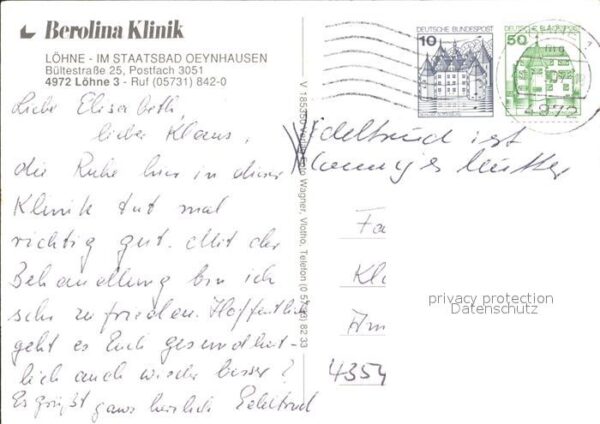 Berolina Klinik
LÖHNE - IM STAATSBAD OEYNHAUSEN
Bültestraße 25, Postfach 3051
4972 Löhne 3 - Ruf (05731) 842-0
Liebe Elisabeth,
lieber Klaus,
die Ruhe hier in dieser
Klinik tut mal
richtig gut. Mit der
Behandlung bin ich
sehr zufrieden. Hoffentlich
geht es Euch gesundheit-
lich auch wieder besser?
Es grüßt ganz herzlich Edeltrud
10 DEUTSCHE BUNDESPOST
50 DEUTSCHE BUNDESPOST
4972
Edeltrud ist
Mutter
Fa
Kl
Am
4354
privacy protection
Datenschutz